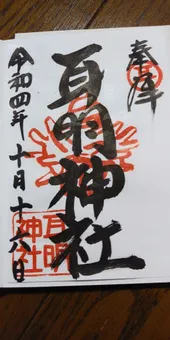 奉拝
耳明神社
耳明
神社
令和四年十月十六日